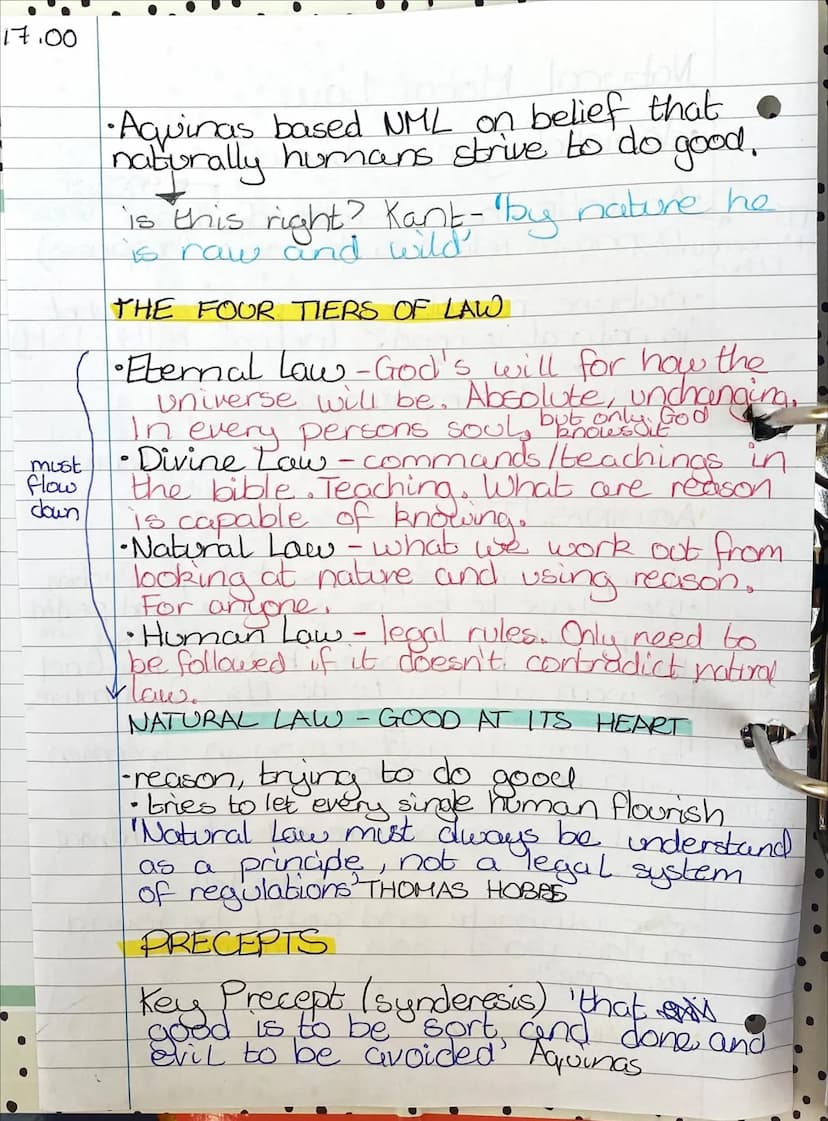 17.00
·Aquinas based NML on belief that
naturally humans strive to do good.
is this right? Kant- 'by nature he
is raw and wild'
THE FOUR TIERS OF LAW
·Eternal Law - God's will for how the
universe will be. Absolute, unchanging.
In every persons soul, but only God
knows it
must
flow
down
·Divine Law - commands/teachings in
the bible. Teaching. What are reason
is capable of knowing.
·Natural Law - what we work out from
looking at nature and using reason.
For anyone.
·Human Law - legal rules. Only need to
be followed if it doesn't contradict natural
law.
NATURAL LAW - GOOD AT ITS HEART
·reason, trying to do good
·tries to let every single human flourish
'Natural Law must always be understand
as a principle, not a legal system
of regulations' THOMAS HOBBS
PRECEPTS
Key Precept (synderesis) 'that
good is to be sort and done and
evil to be avoided' Aquinas